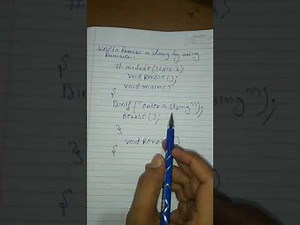 to Reverse a string by using
# include<stdio.h>
void Reverse();
void main()
{
Printf("enter a string");
Reverse();
}
void Revers
{